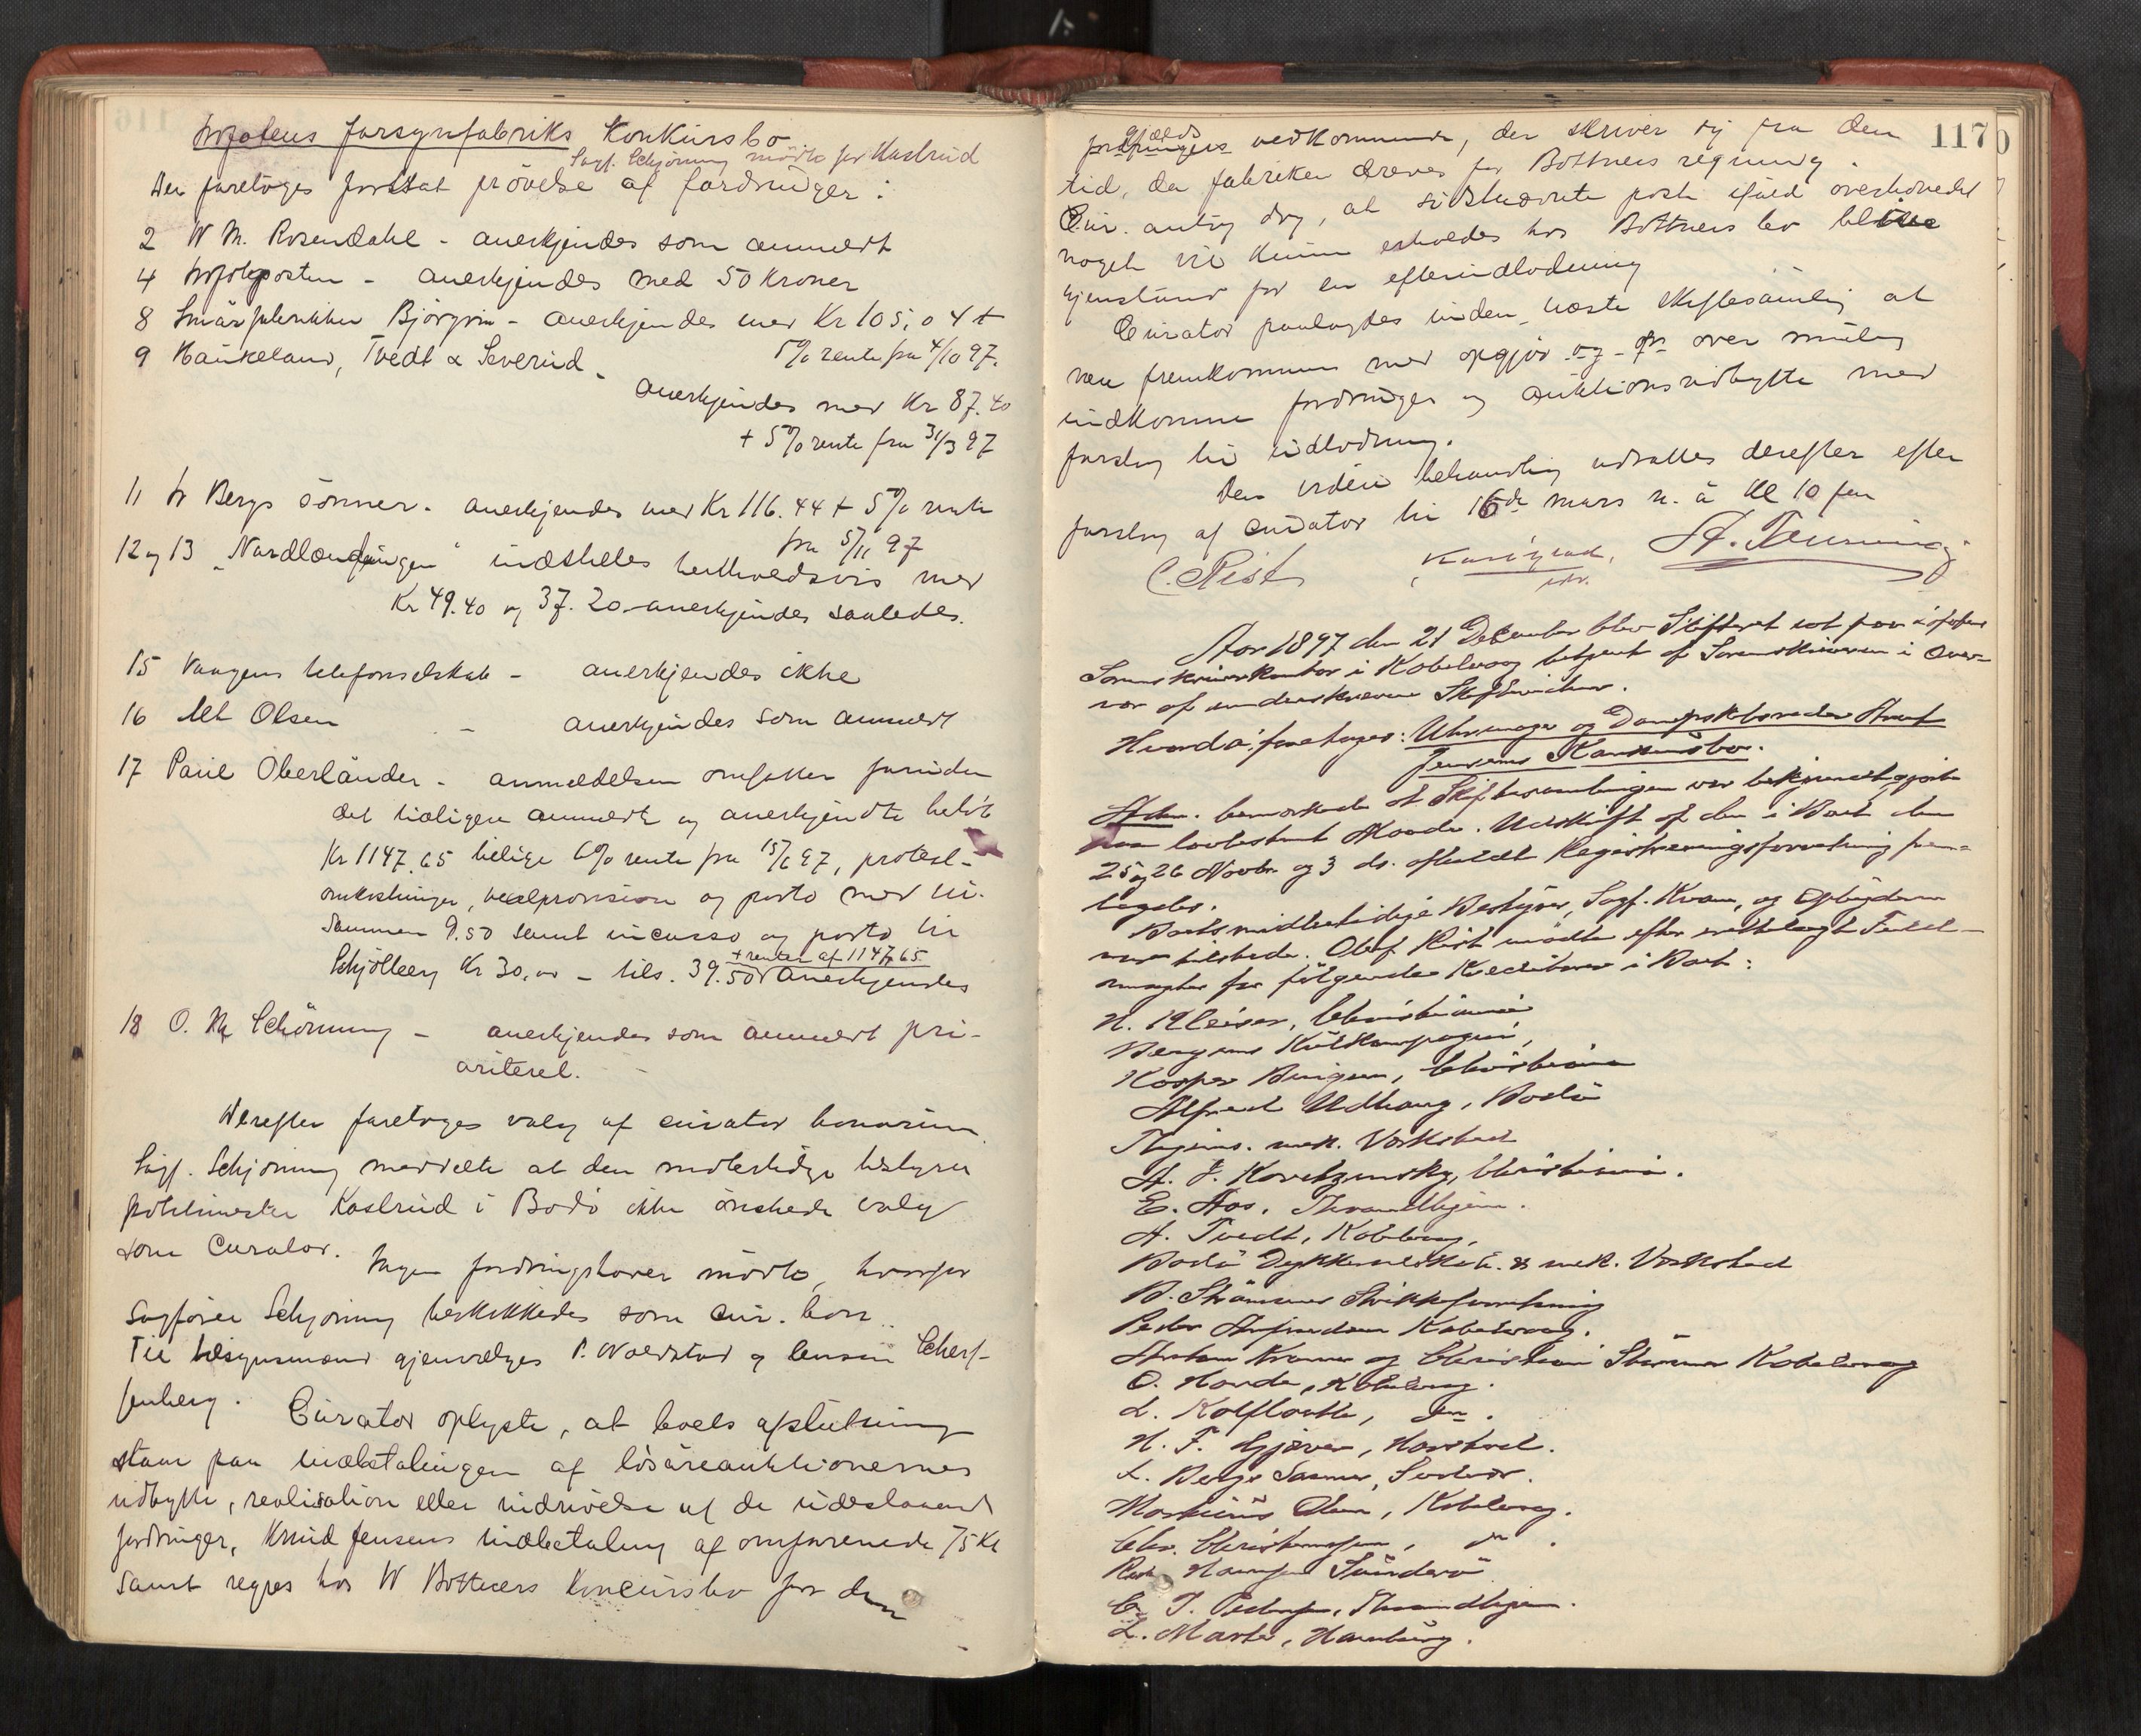 Konkursbo
Sagf. Schjöning mödte for Kastrud
Der foretoges fortsat prövelse af fordringer:
2 W M. Rosendahl - anerkjendes som anmeldt
4 - anerkjendes med 50 Kroner
8 Smörfabrikken Björgvin - anerkjendes med Kr 105,04 +
5% rente fra 4/10 97.
9 Haukeland, Tvedt & Severud -
anerkjendes med Kr 87.40
+ 5% rente fra 31/3 97
11 Bergs sönner - anerkjendes med Kr 116.44 + 5% rente
fra 5/11 97
12 og 13 „Nordlændingen" indstilles henholdsvis med
Kr 49.40 og 37.20 - anerkjendes saaledes.
15 Vaagens telefonselskab - anerkjendes ikke
16 Olsen - anerkjendes som anmeldt
17 Paul Oberländer - anmeldelsen omfatter foruden
det tidligere anmeldte og anerkjendte belöb
Kr 1147.65 tillige 6% rente fra 15/6 97, protest-
omkostninger, vexelprovision og porto med til-
sammen 9.50 samt incasso og porto til
Schjölberg Kr 30,00 - tils. 39.50 anerkjendes
+ renter af 1147.65
18 O. M Schönning - anerkjendes som anmeldt pri-
oriteret.
Derefter foretoges valg af curator bonorum.
Sagf. Schjöning meddelte at den midlertidige bestyrer
politimester Kastrud i Bodö ikke önskede valg
som Curator. Ingen fordringshaver mödte, hvorfor
Sagförer Schjöning beskikkedes som cur. bon.
Til tilsynsmænd gjenvælges P. Woldstad og Schef-
fenberg. Curator oplyste, at boets afslutning
staar paa indbetalingen af lösöreauktionernes
udbytte, realisation eller inddrivelse af de udestaaende
fordringer, Knud Jensens indbetaling af omforenede 75 Kr
samt regres hos W Bottners Konkursbo for den
117
gjælds vedkommende, der skriver sig fra den
tid, da fabriken dreves for Bottners regning.
Cur. antog dog, at sidstnævnte post ifald overhovedet
noget vil kunne erholdes hos Bottners bo
gjenstand for en efterudlodning
Curator paalagdes inden næste skiftesamling at
være fremkommen med opgjör over
indkomne fordringer og auktionsudbytte med
forslag til udlodning.
Den videre behandling udsattes derefter efter
forslag af curator til 16de mars n. a Kl 10 fm
C. Rist
Aar 1897 den 21 December blev Skifteret sat paa
Sorenskriverkontor i Kabelvaag betjent af Sorenskriveren i
af underskrevne Skiftevidner.
Hvorda foretoges: Uhrmager og Dampskibsreder
Jensens Konkursbo.
Adm. bemærkede at Skiftesamlingen var bekjendtgjort
paa lovbestemt Maade. Udskrift af den i Boet den
25 og 26 Novbr og 3 ds. afholdt Registreringsforretning frem-
lagdes.
Boets midlertidige Bestyrer, Sagf. Kvam, og Opbyderen
var tilstede. Olaf Rist mödte efter fremlagt Fuld-
magter for fölgende Kreditorer i Boet:
H. Kleiser, Christiania
Bergens Kulkompagni,
Kasper Bergum, Christiania
Alfred Udhaug, Bodö
Thjems. mek. Værksted
A. J. Koritzinsky, Christiania.
E. Aas, Throndhjem.
A. Tvedt, Kablvaag,
Bodö Dykkerselskab & mek. Værksted
B. Strömmes Forretning
Peder Kabelvaag.
Kramer og Christian Störmer Kabelvaag
O. Kabelvaag.
L. Kolflaath, do.
H. F. Gjæver, Harstad.
L. Bergs Sønner, Svolvær.
Olsen, Kabelvaag.
Chr. Christensen, do.
Hansen
C. J. Pedersen, Throndhjem.
L. Hamburg.